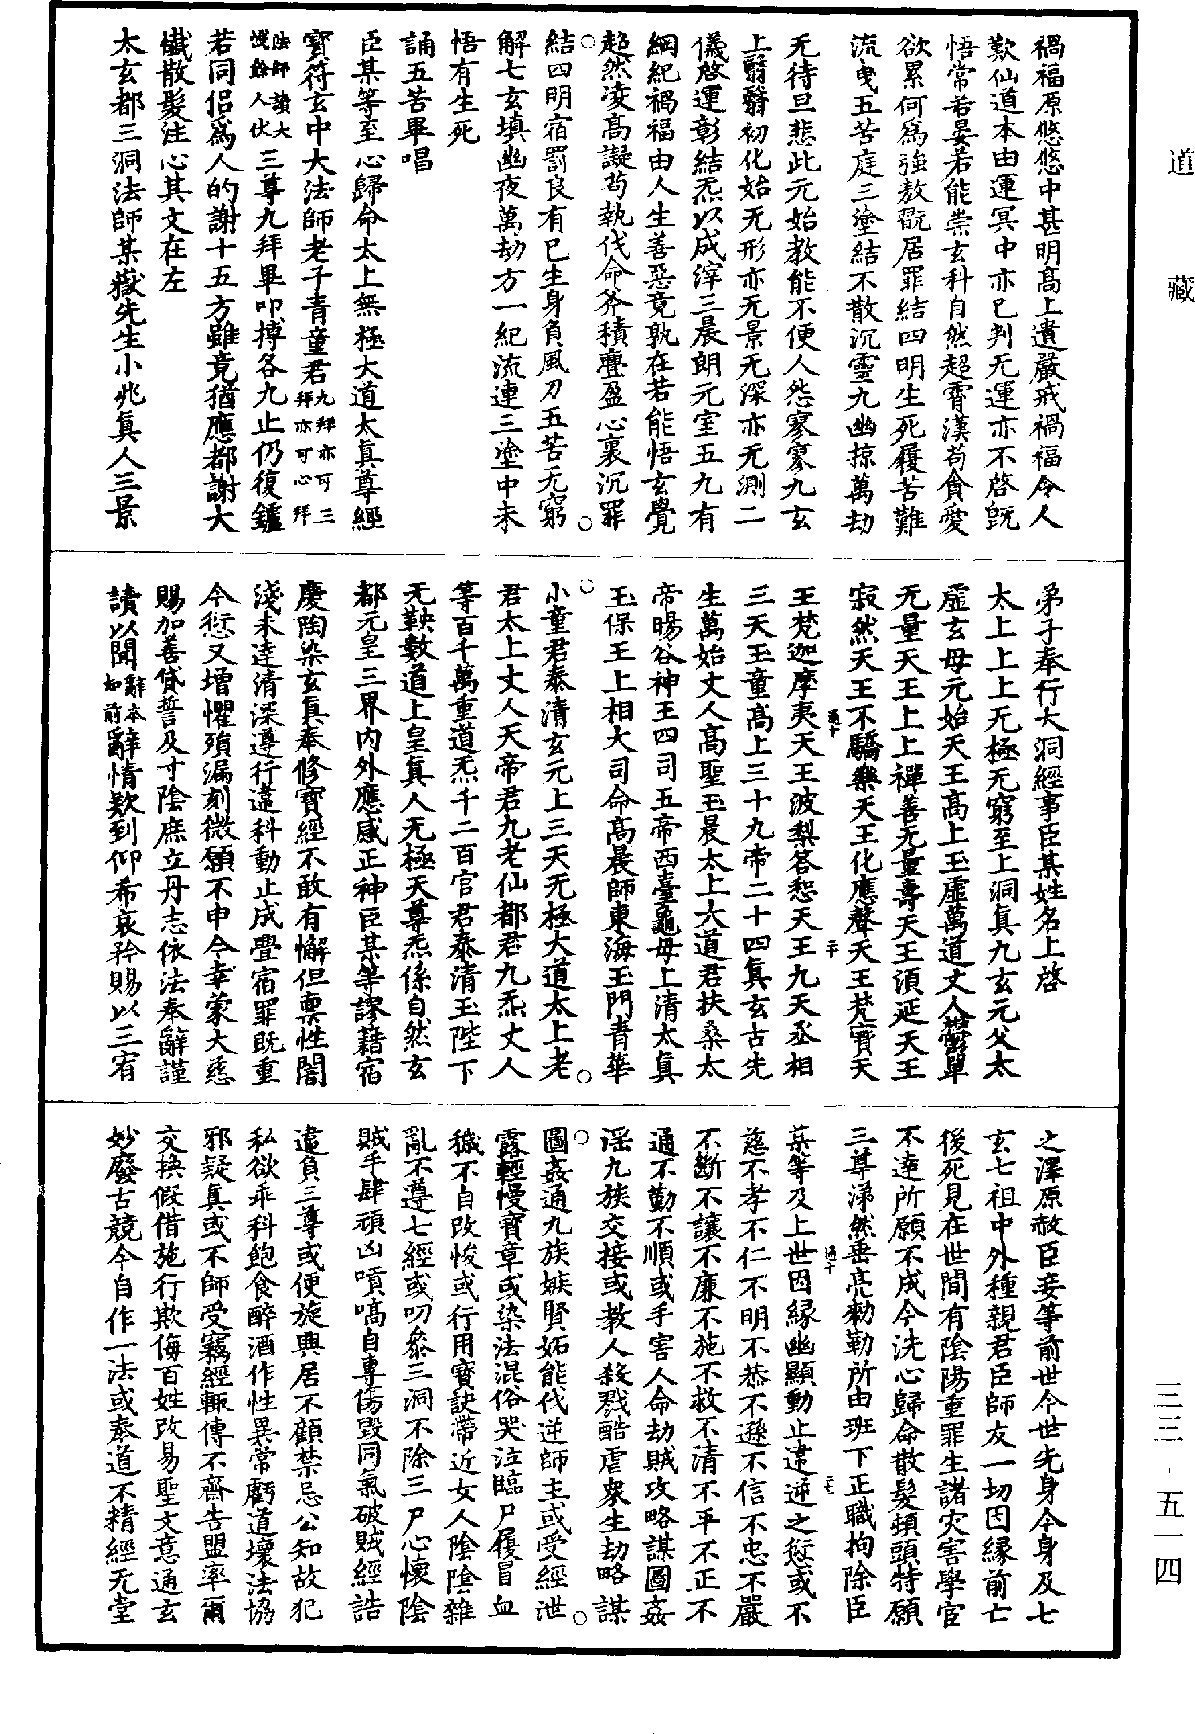 道藏
禍福原悠悠中甚明高上遺嚴戒禍福令人
歎仙道本由運冥中亦已判无運亦不啓旣
悟常若晏若能崇玄科自然超霄漢苟貪愛
欲累何為強敖翫居罪結四明生死履苦難
流曳五苦庭三塗結不散沉靈九幽掠萬劫
无待旦悲此元始教能不使人怨寥寥九玄
上翳翳初化始无形亦无景无深亦无測二
儀啓運彰結炁以成滓三晨朗元室五九有
綱紀禍福由人生善惡竟孰在若能悟玄覺
超然凌高擬苟執伐命斧積舋盈心裏沉罪
結四明宿罰良有已生身負風刀五苦无窮
解七玄填幽夜萬劫方一紀流連三塗中未
悟有生死
誦五苦畢唱
臣某等至心歸命太上無極大道太真尊經
寶符玄中大法師老子青童君九拜亦可三拜亦可心拜
法師讀大懺餘人伏三尊九拜畢叩搏各九止仍復鑪
若同侶為人的謝十五方雖竟猶應都謝大
懺散髮注心其文在左
太玄都三洞法師某嶽先生小兆真人三景
弟子奉行大洞經事臣某姓名上啓
太上上上上无極无窮至上洞真九玄元父太
虛玄母元始天王高上玉虛萬道丈人鬱單
无量天王上上禪善无量壽天王須延天王
寂然天王不驕樂天王化應聲天王梵寶天
王梵迦摩夷天王波梨答惒天王九天丞相
三天玉童高上三十九帝二十四真玄古先
生萬始丈人高聖玉晨太上大道君扶桑太
帝暘谷神王四司五帝西臺龜母上清太真
玉保王上相大司命高晨師東海玉門青華
小童君泰清玄元上三天无極大道太上老
君太上丈人天帝君九老仙都君九炁丈人
等百千萬重道炁千二百官君泰清玉陛下
无鞅數道上皇真人无極天尊炁係自然玄
都元皇三界內外應感正神臣某等謬藉宿
慶陶染玄真奉修寶經不敢有懈但稟性闇
淺未達清深遵行違科動止成舋宿罪既重
今愆又增懼殞漏刻微願不申今幸蒙大慈
賜加善貸誓及寸陰庶立丹志依法奉辭謹
讀以聞辭本如前辭情欵到仰希哀矜賜以三宥
之澤原赦臣妾等前世今世先身今身及七
玄七祖中外種親君臣師友一切因緣前亡
後死見在世間有陰陽重罪生諸灾害學宦
不達所願不成今洗心歸命散髮頓頭特願
三尊渧然垂亮勑勒所由班下正職拘除臣
某等及上世因緣幽顯動止違逆之愆或不
慈不孝不仁不明不恭不遜不信不忠不嚴
不斷不讓不廉不施不救不清不平不正不
通不勤不順或手害人命劫賊攻略謀圖姦
淫九族交接或教人殺戮酷虐衆生劫略謀
圖姦通九族嫉賢妬能伐逆師主或受經泄
露輕慢寶章或染法混俗哭泣臨尸履冒血
穢不自改悛或行用寶訣帶近女人陰陰雜
亂不遵七經或叨叅三洞不除三尸心懷陰
賊手肆頑凶嗔嗃自專傷毀同氣破賊經誥
違負三尊或便旋興居不顧禁忌公知故犯
私欲乖科飽食醉酒作性異常虧道壞法協
邪疑真或不師受竊經輒傳不齋告盟率爾
交換假借施行欺侮百姓改易聖文意通玄
妙廢古競今自作一法或奉道不精經无堂
三三·五一四